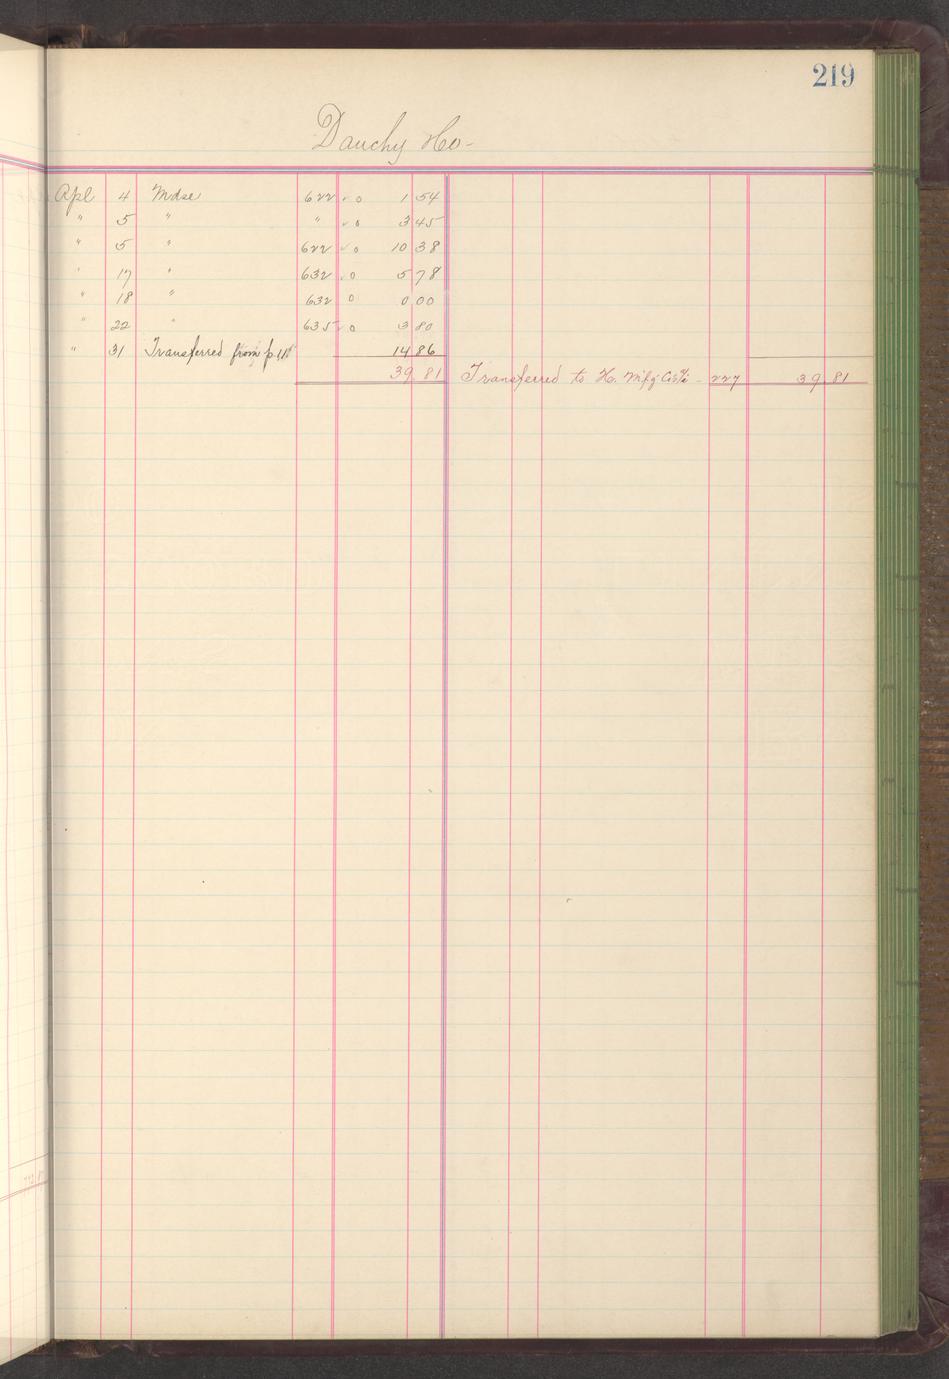 219
Dauchy Ho-
Apl 4 Mdse 622 ✓ o 1 54
" 5 " " ✓ o 3 45
" 5 " 622 ✓ o 10 38
" 17 " 632 ✓ o 5 78
" 18 " 632 o 0 00
" 22 " 635 ✓ o 3 80
" 31 Transferred from p. 14 86
39 81 Transferred to H. Mfg Co's % - 227 39 81